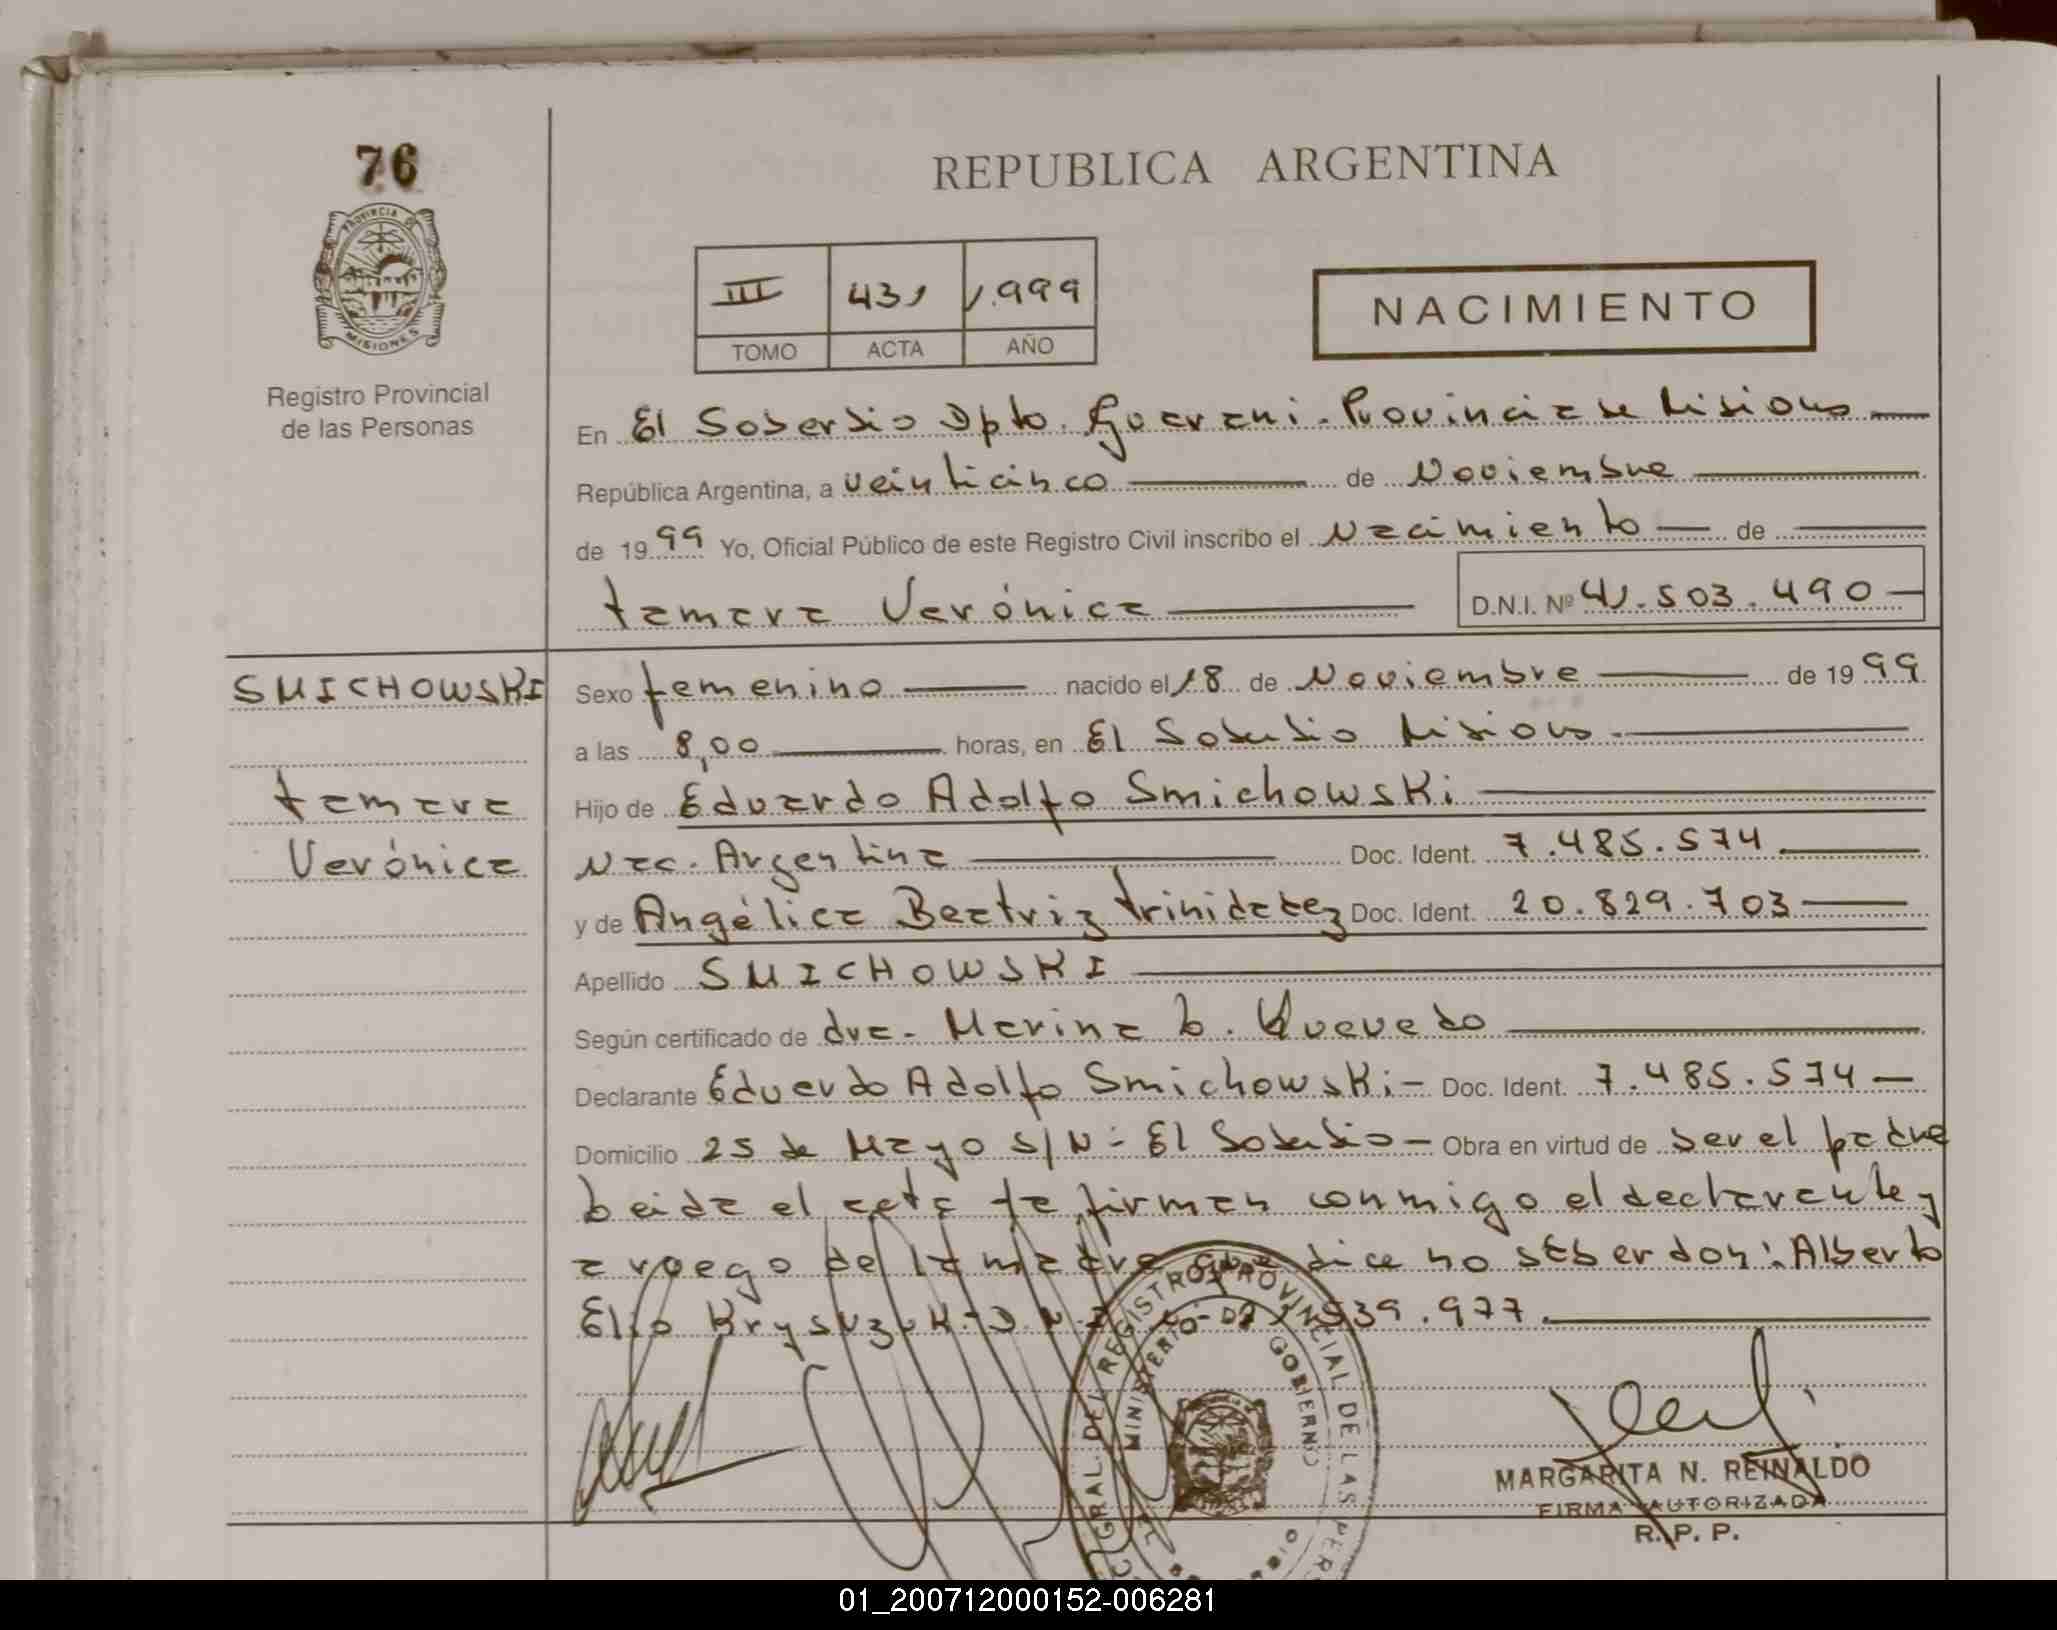 76
REPUBLICA ARGENTINA
PROVINCIA DE
MISIONES
Registro Provincial
de las Personas
III 431 1.999
TOMO ACTA AÑO
NACIMIENTO
En El Soberbio Dpto. Guarani. Provincia de Misiones
República Argentina, a veinticinco de Noviembre
de 1999 Yo, Oficial Público de este Registro Civil inscribo el Nacimiento de
tamara Verónica D.N.I. Nº 41.503.490
SMICHOWSKI
tamara
Verónica
Sexo femenino nacido el 18 de Noviembre de 1999
a las 8,00 horas, en El Soberbio Misiones.
Hijo de Eduardo Adolfo Smichowski
Nac. Argentina Doc. Ident. 7.485.574
y de Angélica Beatriz trinidadez Doc. Ident. 20.829.703
Apellido SMICHOWSKI
Según certificado de dra. Marina L. Quevedo
Declarante Eduardo Adolfo Smichowski- Doc. Ident. 7.485.574
Domicilio 25 de Mayo S/N- El Soberbio- Obra en virtud de ser el padre
Leida el acta la firman conmigo el declarante y
a ruego de la madre que dice no saber don: Alberto
Elio 939.977.
REGISTRO PROVINCIAL DE LAS
MINISTERIO DE GOBIERNO
MARGARITA N. REINALDO
FIRMA AUTORIZADA
R. P. P.
01_200712000152-006281